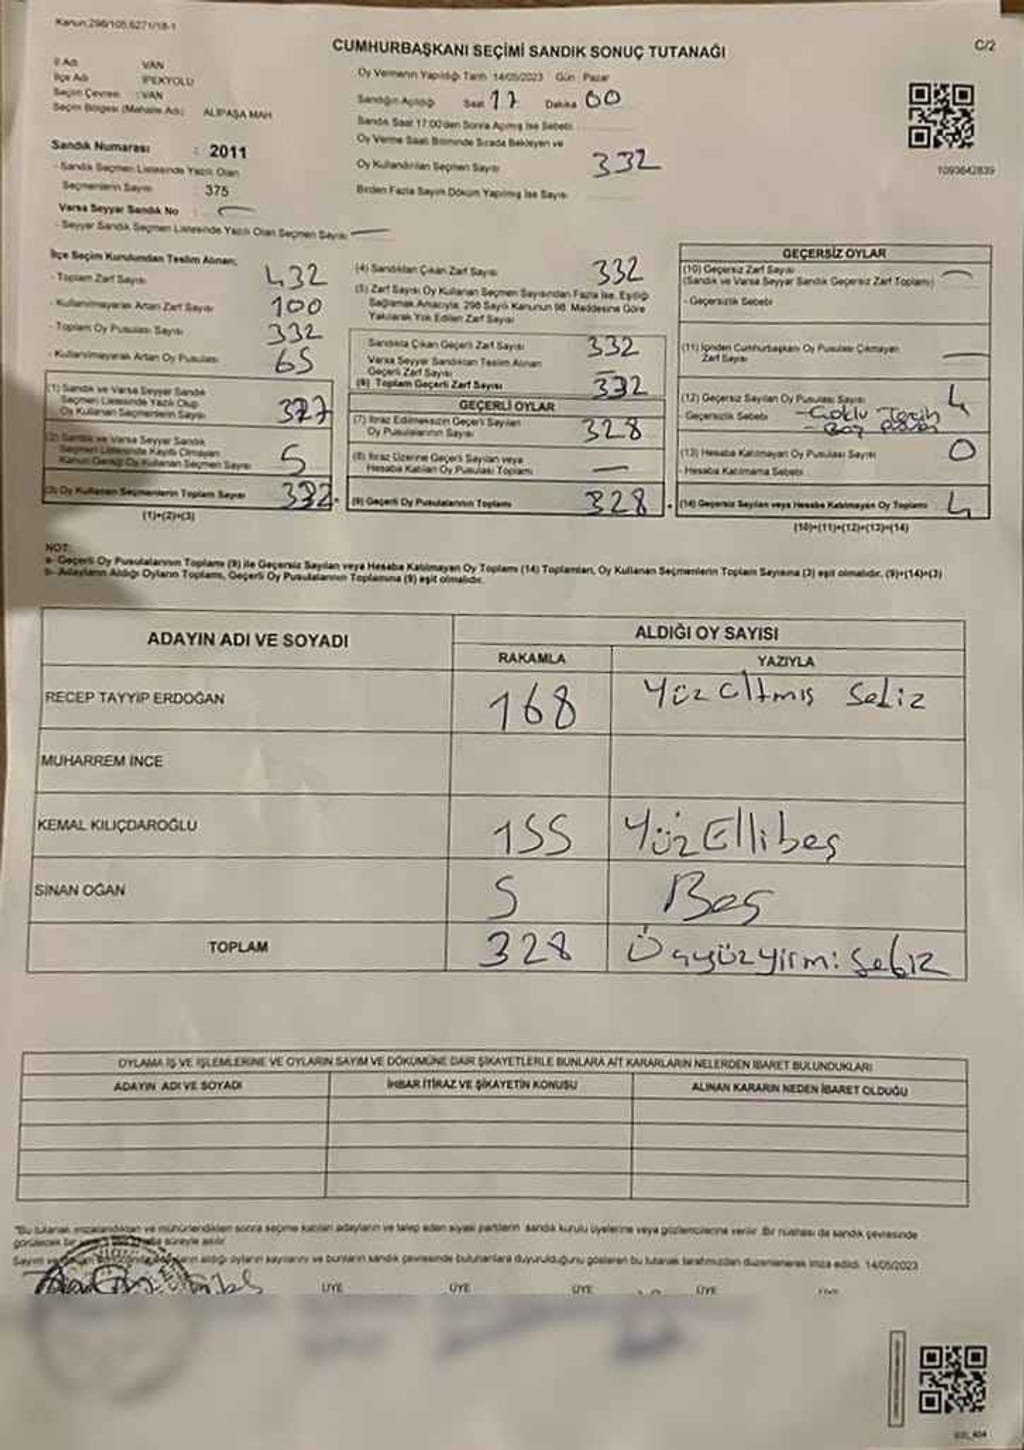 Kanun:298/105,6271/18-1
CUMHURBAŞKANI SEÇİMİ SANDIK SONUÇ TUTANAĞI
C/2
İl Adı VAN
İlçe Adı İPEKYOLU
Seçim Çevresi :VAN
Seçim Bölgesi (Mahalle Adı) ALİPAŞA MAH
Sandık Numarası : 2011
- Sandık Seçmen Listesinde Yazılı Olan
Seçmenlerin Sayısı 375
Varsa Seyyar Sandık No : —
- Seyyar Sandık Seçmen Listesinde Yazılı Olan Seçmen Sayısı —
Oy Vermenin Yapıldığı Tarih 14/05/2023 Gün Pazar
Sandığın Açıldığı Saat 17 Dakika 00
Sandık Saat 17:00'den Sonra Açılmış İse Sebebi
Oy Verme Saati Bitiminde Sırada Bekleyen ve
Oy Kullandırılan Seçmen Sayısı 332
Birden Fazla Sayım Döküm Yapılmış İse Sayısı
1093642839
İlçe Seçim Kurulundan Teslim Alınan;
- Toplam Zarf Sayısı 432
- Kullanılmayarak Artan Zarf Sayısı 100
- Toplam Oy Pusulası Sayısı 332
- Kullanılmayarak Artan Oy Pusulası 65
(1) Sandık ve Varsa Seyyar Sandık
Seçmen Listesinde Yazılı Olup
Oy Kullanan Seçmenlerin Sayısı 327
(2) Sandık ve Varsa Seyyar Sandık
Seçmen Listesinde Kayıtlı Olmayan
Kanun Gereği Oy Kullanan Seçmen Sayısı 5
(3) Oy Kullanan Seçmenlerin Toplam Sayısı 332
(1)+(2)=(3)
(4) Sandıktan Çıkan Zarf Sayısı 332
(5) Zarf Sayısı Oy Kullanan Seçmen Sayısından Fazla İse, Eşitliği
Sağlamak Amacıyla, 298 Sayılı Kanunun 98. Maddesine Göre
Yakılarak Yok Edilen Zarf Sayısı
Sandıkta Çıkan Geçerli Zarf Sayısı 332
Varsa Seyyar Sandıktan Teslim Alınan
Geçerli Zarf Sayısı —
(6) Toplam Geçerli Zarf Sayısı 332
GEÇERLİ OYLAR
(7) İtiraz Edilmeksizin Geçerli Sayılan
Oy Pusulalarının Sayısı 328
(8) İtiraz Üzerine Geçerli Sayılan veya
Hesaba Katılan Oy Pusulası Toplamı —
(9) Geçerli Oy Pusulalarının Toplamı 328
GEÇERSİZ OYLAR
(10) Geçersiz Zarf Sayısı —
(Sandık ve Varsa Seyyar Sandık Geçersiz Zarf Toplamı)
- Geçersizlik Sebebi
(11) İçinden Cumhurbaşkanı Oy Pusulası Çıkmayan
Zarf Sayısı —
(12) Geçersiz Sayılan Oy Pusulası Sayısı 4
- Geçersizlik Sebebi - Çoklu Tercih
(13) Hesaba Katılmayan Oy Pusulası Sayısı 0
- Hesaba Katılmama Sebebi
(14) Geçersiz Sayılan veya Hesaba Katılmayan Oy Toplamı 4
(10)+(11)+(12)+(13)=(14)
NOT:
a- Geçerli Oy Pusulalarının Toplamı (9) ile Geçersiz Sayılan veya Hesaba Katılmayan Oy Toplamı (14) Toplamları, Oy Kullanan Seçmenlerin Toplam Sayısına (3) eşit olmalıdır. (9)+(14)=(3)
b- Adayların Aldığı Oyların Toplamı, Geçerli Oy Pusulalarının Toplamına (9) eşit olmalıdır.
ADAYIN ADI VE SOYADI ALDIĞI OY SAYISI
RAKAMLA YAZIYLA
RECEP TAYYİP ERDOĞAN 168 Yüz altmış Sekiz
MUHARREM İNCE
KEMAL KILIÇDAROĞLU 155 YüzEllibeş
SİNAN OĞAN 5 Beş
TOPLAM 328 Üçyüzyirmi Sekiz
OYLAMA İŞ VE İŞLEMLERİNE VE OYLARIN SAYIM VE DÖKÜMÜNE DAİR ŞİKAYETLERLE BUNLARA AİT KARARLARIN NELERDEN İBARET BULUNDUKLARI
ADAYIN ADI VE SOYADI İHBAR İTİRAZ VE ŞİKAYETİN KONUSU ALINAN KARARIN NEDEN İBARET OLDUĞU
"Bu tutanak imzalandıktan ve mühürlendikten sonra seçime katılan adayların ve talep eden siyasi partilerin sandık kurulu üyelerine veya gözlemcilerine verilir. Bir nüshası da sandık çevresinde
görülecek bir süreyle asılır.
Sayım aldığı oyların sayılarını ve bunların sandık çevresinde bulunanlara duyurulduğunu gösteren bu tutanak tarafımızdan düzenlenerek imza edildi. 14/05/2023
ÜYE ÜYE ÜYE ÜYE